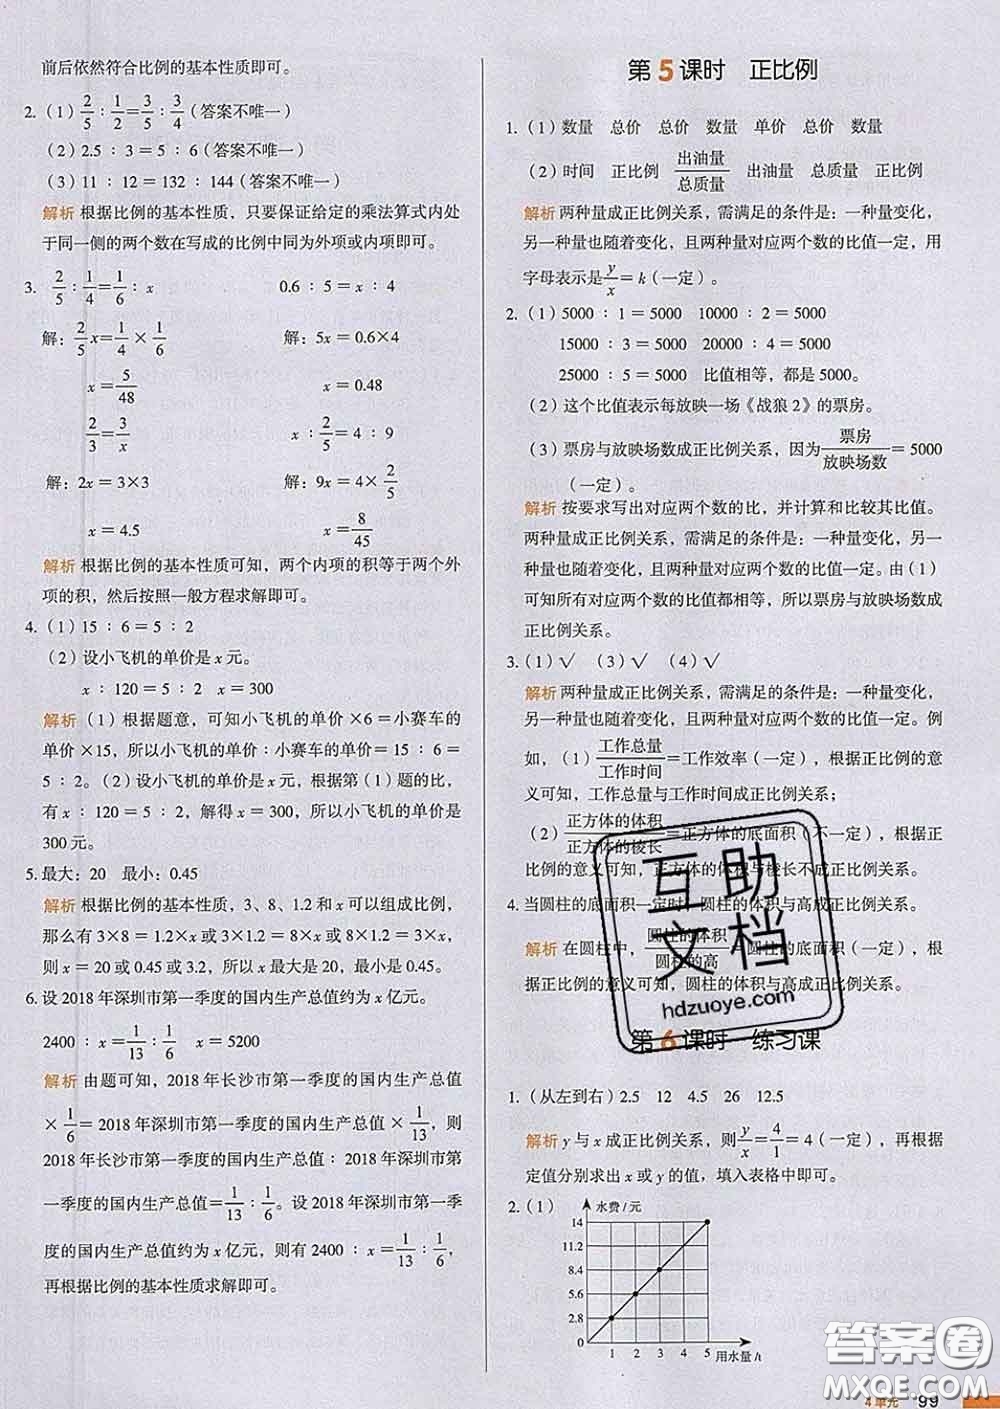 前后依然符合比例的基本性质即可。
2.（1）2/5∶1/2=3/5∶3/4（答案不唯一）
（2）2.5∶3=5∶6（答案不唯一）
（3）11∶12=132∶144（答案不唯一）
解析 根据比例的基本性质，只要保证给定的乘法算式内处
于同一侧的两个数在写成的比例中同为外项或内项即可。
3. 2/5∶1/4=1/6∶x 0.6∶5=x∶4
解：2/5x=1/4×1/6 解：5x=0.6×4
x=5/48 x=0.48
2/3=3/x x∶2/5=4∶9
解：2x=3×3 解：9x=4×2/5
x=4.5 x=8/45
解析 根据比例的基本性质可知，两个内项的积等于两个外
项的积，然后按照一般方程求解即可。
4.（1）15∶6=5∶2
（2）设小飞机的单价是x元。
x∶120=5∶2 x=300
解析（1）根据题意，可知小飞机的单价×6=小赛车的
单价×15，所以小飞机的单价∶小赛车的单价=15∶6=
5∶2。（2）设小飞机的单价是x元，根据第（1）题的比，
有x∶120=5∶2，解得x=300，所以小飞机的单价是
300元。
5.最大：20 最小：0.45
解析 根据比例的基本性质，3、8、1.2和x可以组成比例，
那么有3×8=1.2×x或3×1.2=8×x或8×1.2=3×x，
则x=20或0.45或3.2，所以x最大是20，最小是0.45。
6.设2018年深圳市第一季度的国内生产总值约为x亿元。
2400∶x=1/13∶1/6 x=5200
解析 由题可知，2018年长沙市第一季度的国内生产总值
×1/6=2018年深圳市第一季度的国内生产总值×1/13，则
2018年长沙市第一季度的国内生产总值∶2018年深圳市第
一季度的国内生产总值=1/13∶1/6。设2018年深圳市第一季
度的国内生产总值约为x亿元，则有2400∶x=1/13∶1/6，
再根据比例的基本性质求解即可。
第5课时 正比例
1.（1）数量 总价 总价 数量 单价 总价 数量
（2）时间 正比例 出油量/总质量 出油量 总质量 正比例
解析 两种量成正比例关系，需满足的条件是：一种量变化，
另一种量也随着变化，且两种量对应两个数的比值一定，用
字母表示是y/x=k（一定）。
2.（1）5000∶1=5000 10000∶2=5000
15000∶3=5000 20000∶4=5000
25000∶5=5000 比值相等，都是5000。
（2）这个比值表示每放映一场《战狼2》的票房。
（3）票房与放映场数成正比例关系，因为票房/放映场数=5000
（一定）。
解析 按要求写出对应两个数的比，并计算和比较其比值。
两种量成正比例关系，需满足的条件是：一种量变化，另一
种量也随着变化，且两种量对应两个数的比值一定。由（1）
可知所有对应两个数的比值都相等，所以票房与放映场数成
正比例关系。
3.（1）√ （3）√ （4）√
解析 两种量成正比例关系，需满足的条件是：一种量变化，
另一种量也随着变化，且两种量对应两个数的比值一定。例
如，（1）工作总量/工作时间=工作效率（一定），根据正比例的意
义可知，工作总量与工作时间成正比例关系；
（2）正方体的体积/正方体的棱长=正方体的底面积（不一定），根据正
比例的意义可知，正方体的体积与棱长不成正比例关系。
4.当圆柱的底面积一定时，圆柱的体积与高成正比例关系。
解析 在圆柱中，圆柱的体积/圆柱的高=圆柱的底面积（一定），根
据正比例的意义可知，圆柱的体积与高成正比例关系。
互助
文档
hdzuoye.com
第6课时 练习课
1.（从左到右）2.5 12 4.5 26 12.5
解析 y与x成正比例关系，则y/x=4/1=4（一定），再根据
定值分别求出x或y的值，填入表格中即可。
2.（1） 水费/元
14
11.2
8.4
5.6
2.8
0 1 2 3 4 5 用水量/t
答案圈
MXQE.COM
4单元 99